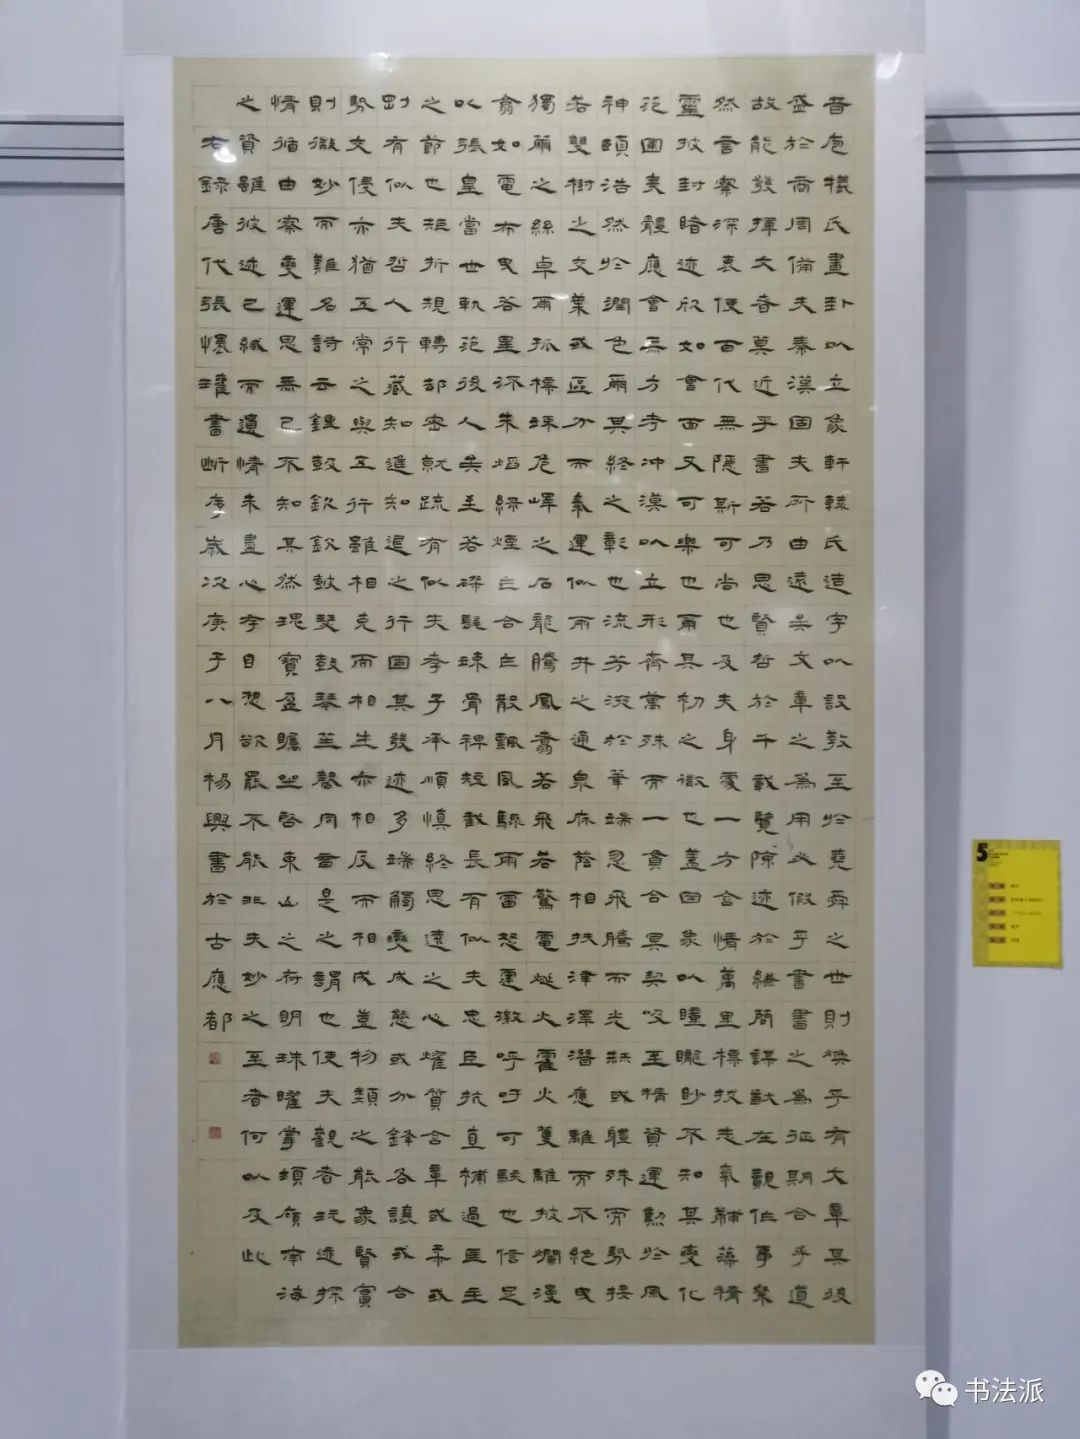 昔庖犧氏畫卦以立象軒轅氏造字以設教至於堯舜之世則煥乎有文章其後
盛於商周備夫秦漢固夫所由遠矣文章之為用必假乎書書之為征期合乎道
故能發揮文者莫近乎書若乃思賢哲於千載覽陳迹於縑簡謀猷在覿作事粲
然言察深衷使百代無隱斯可尚也及夫身處一方含情萬里標拔志氣黼藻精
靈披封睹迹欣如會面又可樂也爾其初之微也蓋因象以瞳矓眇不知其變化
范圍夷體應會無方考沖漠以立形齊萬殊而一貫合冥契吸至精資運動於風
神頤浩然於潤色爾其終之彰也流芳液於筆端忽飛騰而光赫或體殊而勢接
若雙樹之交葉或區分而氣運似兩井之通泉庥蔭相扶津澤潛應離而不絕曳
獨繭之絲卓爾孤標竦危峰之石龍騰鳳翥若飛若驚電烻火霍火離披爛漫
翕如電布曳若星流朱焰綠煙乍合乍散飄風驟雨雷怒霆激呼吁可駭也信足
以張皇當世軌範後人矣至若磔髦竦骨裨短截長有似夫忠臣抗直補過匡主
之節也矩折規轉却密就疏有似夫孝子承順慎終思遠之心耀質含章或柔或
剛有似夫哲人行藏知進知退之行固其發迹多端觸變成態或分鋒各讓或合
勢交侵亦猶五常之與五行雖相克而相生亦相反而相成豈物類之能象賢實
則微妙而難名詩云鐘鼓欽欽鼓瑟鼓琴笙磬同音是之謂也使夫觀者玩迹探
情循由察變運思無已不知其然瑰寶盈矚坐啓東山之府明珠曜掌頓傾南海
之資雖彼迹已緘而遺情未盡心存目想欲罷不能非夫妙之至者何以及此
右錄唐代張懷瓘書斷序歲次庚子八月楊興書於古應都
5
书法派